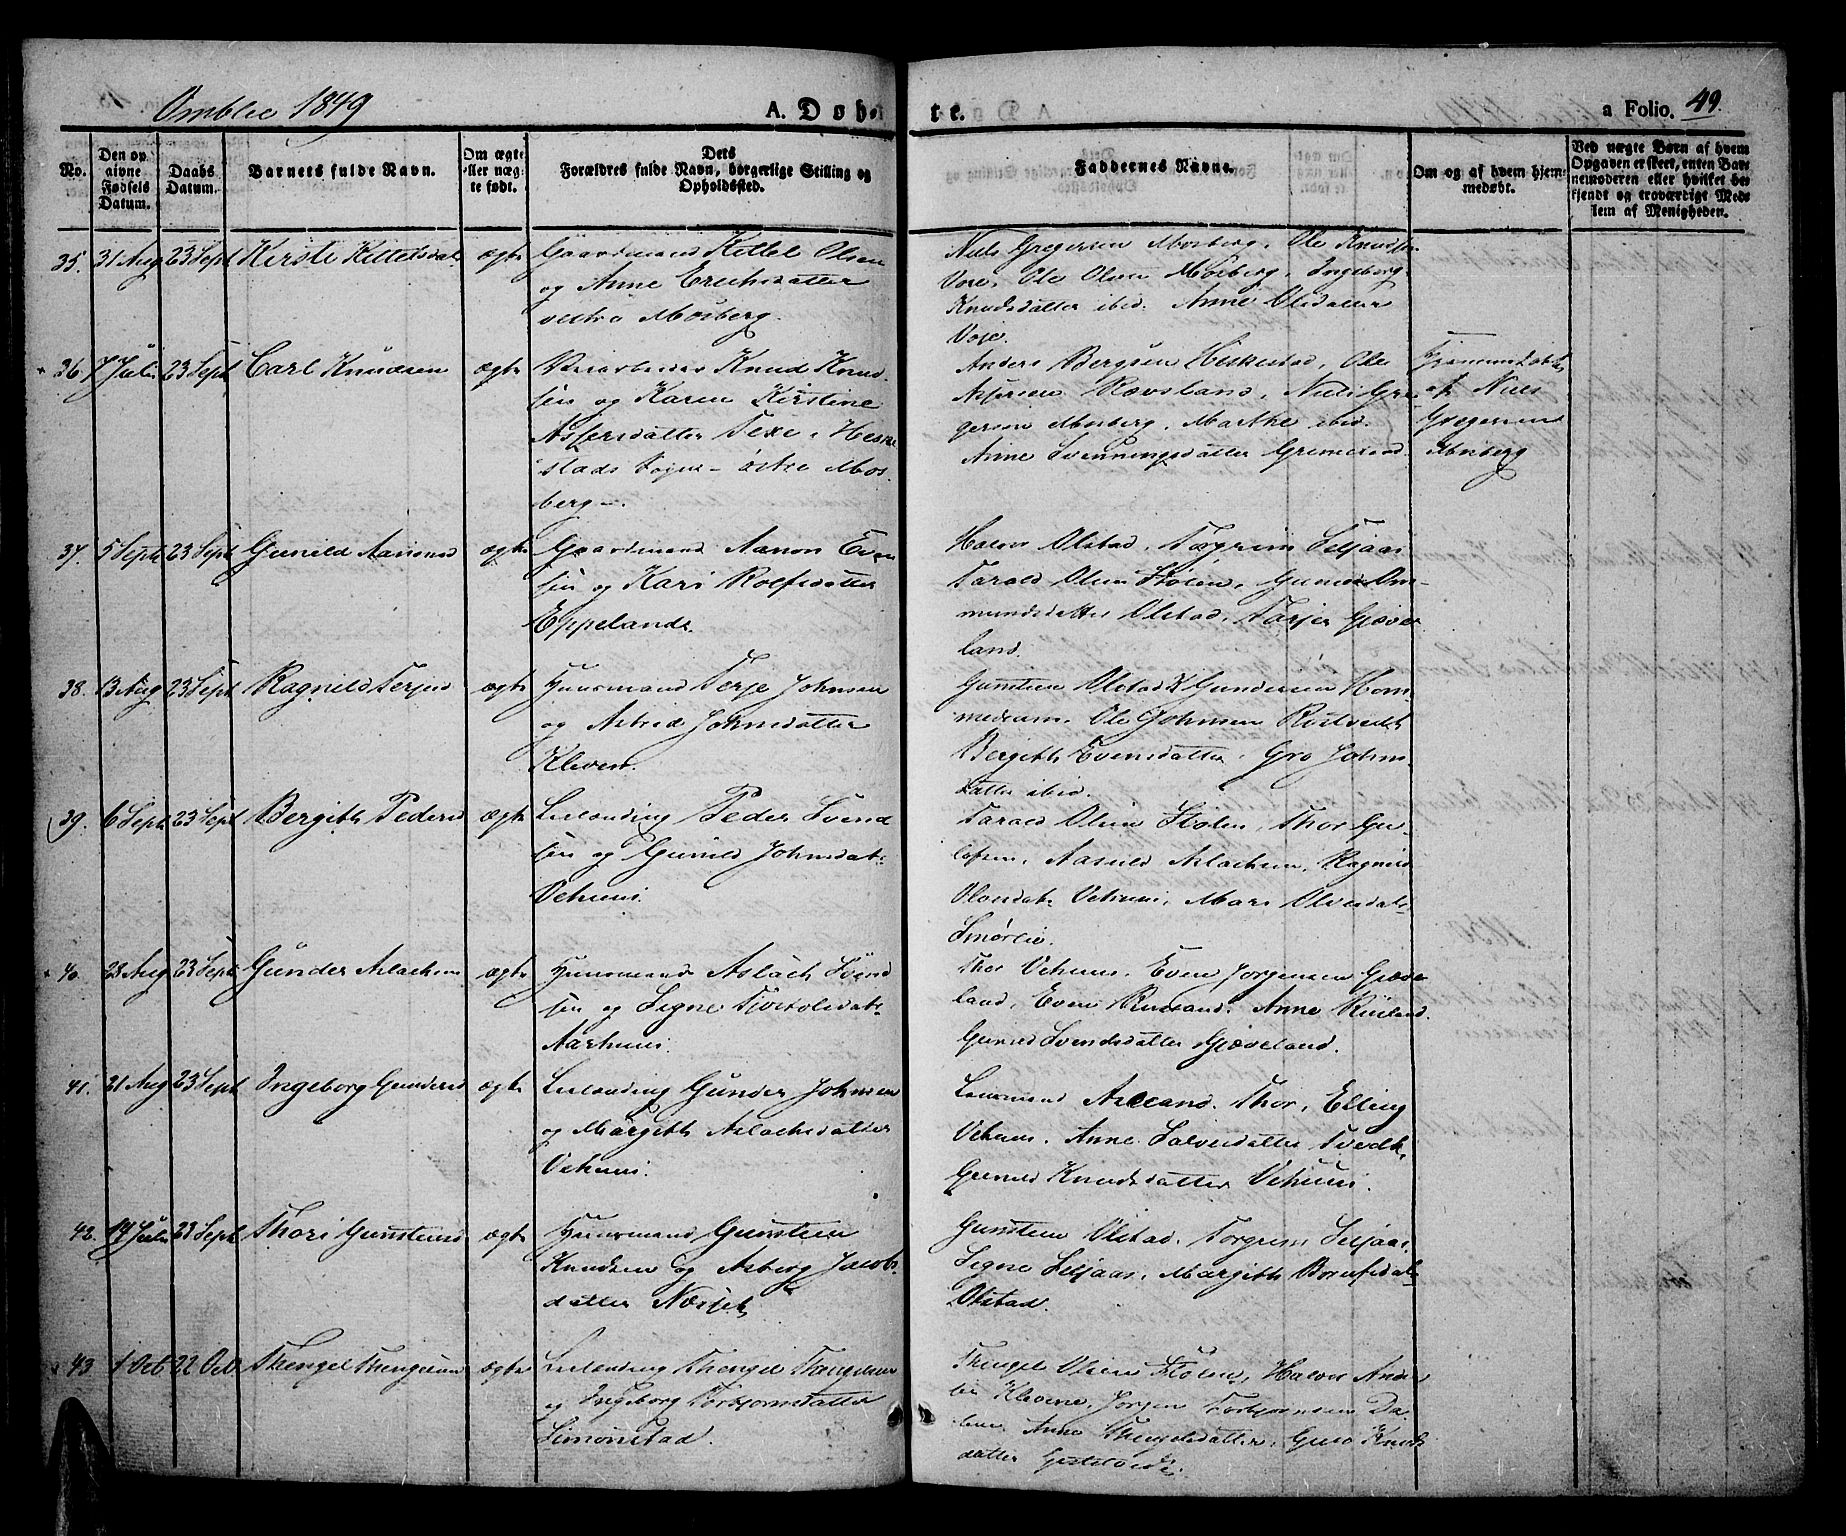 Omblie 1849
A. Døbte.
a Folio. 49.
No.
Den op aivne Fødsels Datum.
Daabs Datum.
Barnets fulde Navn.
Om ægte eller næg te født.
Dets Forældres fulde Navn, borgerlige Stilling og Opholdssted.
Faddernes Navne.
Om og af hvem hjem medøbt.
Ved uægte Børn af hvem Opgaven er skeet, enten Bar nemoderen eller hvilket be kjendt og troværdigt Med lem af Menigheden.
35. 31 Aug 23 Sept Kirste Kittelsdat. ægte
Gaardmand Kittel Olsen
og Anne Erichsdatter
vestre Mosberg.
Niels Gregersen Mosberg, Ole Knudsen
Voie, Ole Olsen Mosberg, Ingeborg
Knudsdatter ibid. Anne Olsdatter
Voje.
36 7 Juli 23 Sept Carl Knudsen ægte
Knud Knud
sen og Karen Kirstine
Assersdatter Texe i Heske
stads Sogn - østre Mos
berg -.
Anders Bergsen Heskestad, Ole
Assersen Rævsland, Niels Gre
gersen Mosberg, Marthe ibid.
Anne Svenningsdatter Grimesad
Hjemmedøbt
af Niels
Gregersen
Mosberg
37. 5 Sept 23 Sept Gunild Aanonsd ægte
Gaardmand Aanon Even
sen og Kari Rolfsdatter
Eppelands.
Halvor Olstad, Torgrim Seljaas
Tarald Olsen Stolen, Gunild Om-
mundsdatter Olstad, Tarjer Gjøver
land.
38. 13 Aug 23 Sept Ragnild Terjesd ægte
Huusmand Terje Johnsen
og Astrid Johnsdatter
Kleven.
Gunsten Olstad, K Gundersen Hom
medrum, Ole Johnsen Rostvedt
Bergith Evensdatter, Gro Johns
datter ibid.
39. 6 Sept 23 Sept Bergith Pedersd ægte
Leilænding Peder Svend
sen og Gunild Johnsdat.
Vehuus.
Tarald Olsen Stolen, Thor Gu-
lofsen, Aasuld Aslachsen, Ragnild
Olvesdat. Vehuus, Mari Olvesdat.
Smørlie.
40. 23 Aug 23 Sept Gunder Aslachsen ægte
Huusmand Aslach Svend
sen og Signe Tjostolsdat.
Aarhuus.
Thor Vehuus, Even Jorgensen Gjøve
land, Even Ruesand, Anne
Gunild Svendsdatter Gjøveland.
41. 31 Aug 23 Sept Ingeborg Gundersd ægte
Leilænding Gunder Johnsen
og Margith Aslachsdatter
Vehuus.
Lensmand Askland, Thor, Elling
Vehuus, Anne Salvesdatter Tvedt,
Gunild Knudsdatter Vehuus.
42. 17 Juli 23 Sept Thori Gunsteinsd ægte
Huusmand Gunstein
Knudsen og Asberg Jacobs
datter Næsset
Gunstein Olstad, Torgrim Seljaas,
Signe Seljaas, Margith Bernsdat.
Olstad.
43 1 Oct 22 Oct. Thengel Thengelsen ægte
Leilænding Thengel Thengelsen
og Ingeborg Torbjornsdatter
Simonstad.
Thengel Olsen Stolen, Halvor Ander
sen Klevene, Jorgen Torbjørnsen Da-
len, Anne Thengelsdatter, Guro Knuds
datter